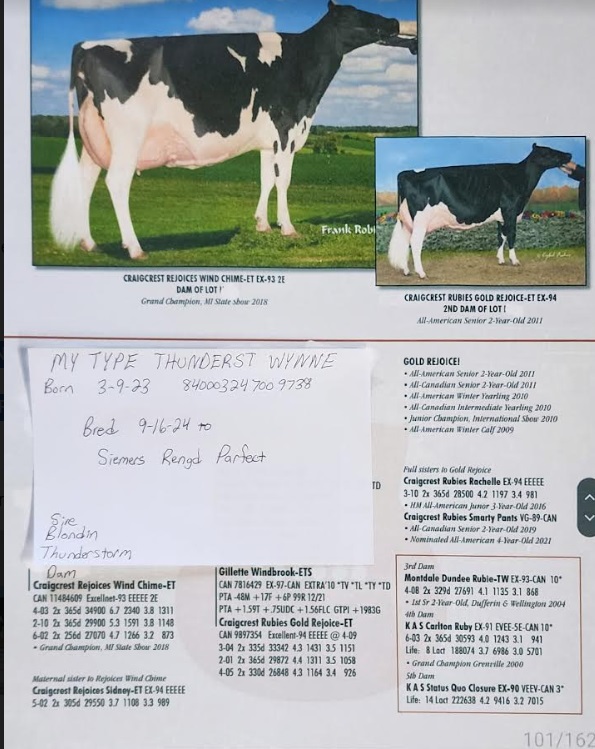 Frank Robi
CRAIGCREST REJOICES WIND CHIME-ET EX-93 2E
DAM OF LOT 1
Grand Champion, MI State Show 2018
CRAIGCREST RUBIES GOLD REJOICE-ET EX-94
2ND DAM OF LOT 1
All-American Senior 2-Year-Old 2011
MY TYPE THUNDERST WYNNE
Born 3-9-23 840003247009738
Bred 9-16-24 to
Siemers Rengd Parfect
Sire
Blondin
Thunderstorm
Dam
Craigcrest Rejoices Wind Chime-ET
CAN 11484609 Excellnet-93 EEEEE 2E
4-03 2x 365d 34900 6.7 2340 3.8 1311
2-10 2x 365d 29900 5.3 1591 3.8 1148
6-02 2x 256d 27070 4.7 1266 3.2 873
• Grand Champion, MI State Show 2018
Maternal sister to Rejoices Wind Chime
Craigcrest Rejoices Sidney-ET EX-94 EEEEE
5-02 2x 305d 29550 3.7 1108 3.3 989
TD
Gillette Windbrook-ETS
CAN 7816429 EX-97-CAN EXTRA'10 *TV *TL *TY *TD
PTA -48M +17F +6P 99R 12/21
PTA +1.59T +.75UDC +1.56FLC GTPI +1983G
Craigcrest Rubies Gold Rejoice-ET
CAN 9897354 Excellent-94 EEEEE @ 4-09
3-04 2x 335d 33342 4.3 1431 3.5 1151
2-01 2x 365d 29872 4.4 1311 3.5 1058
4-05 2x 330d 26848 4.3 1164 3.4 926
GOLD REJOICE!
• All-American Senior 2-Year-Old 2011
• All-Canadian Senior 2-Year-Old 2011
• All-American Winter Yearling 2010
• All-Canadian Intermediate Yearling 2010
• Junior Champion, International Show 2010
• All-American Winter Calf 2009
Full sisters to Gold Rejoice
Craigcrest Rubies Rachelle EX-94 EEEEE
3-10 2x 365d 28500 4.2 1197 3.4 981
• HM All-American Junor 3-Year-Old 2016
Craigcrest Rubies Smarty Pants VG-89-CAN
• All-Canadian Senior 2-Year-Old 2019
• Nominated All-American 4-Year-Old 2021
3rd Dam
Montdale Dundee Rubie-TW EX-93-CAN 10*
4-08 2x 329d 27691 4.1 1135 3.1 868
• 1st Sr 2-Year-Old, Dufferin & Wellington 2004
4th Dam
K A S Carlton Ruby EX-91 EVEE-5E-CAN 10*
6-03 2x 365d 30593 4.0 1243 3.1 941
Life: 8 Lact 188074 3.7 6986 3.0 5701
• Grand Champion Grenville 2000
5th Dam
K A S Status Quo Closure EX-90 VEEV-CAN 3*
Life: 14 Lact 222638 4.2 9416 3.2 7015
101/162